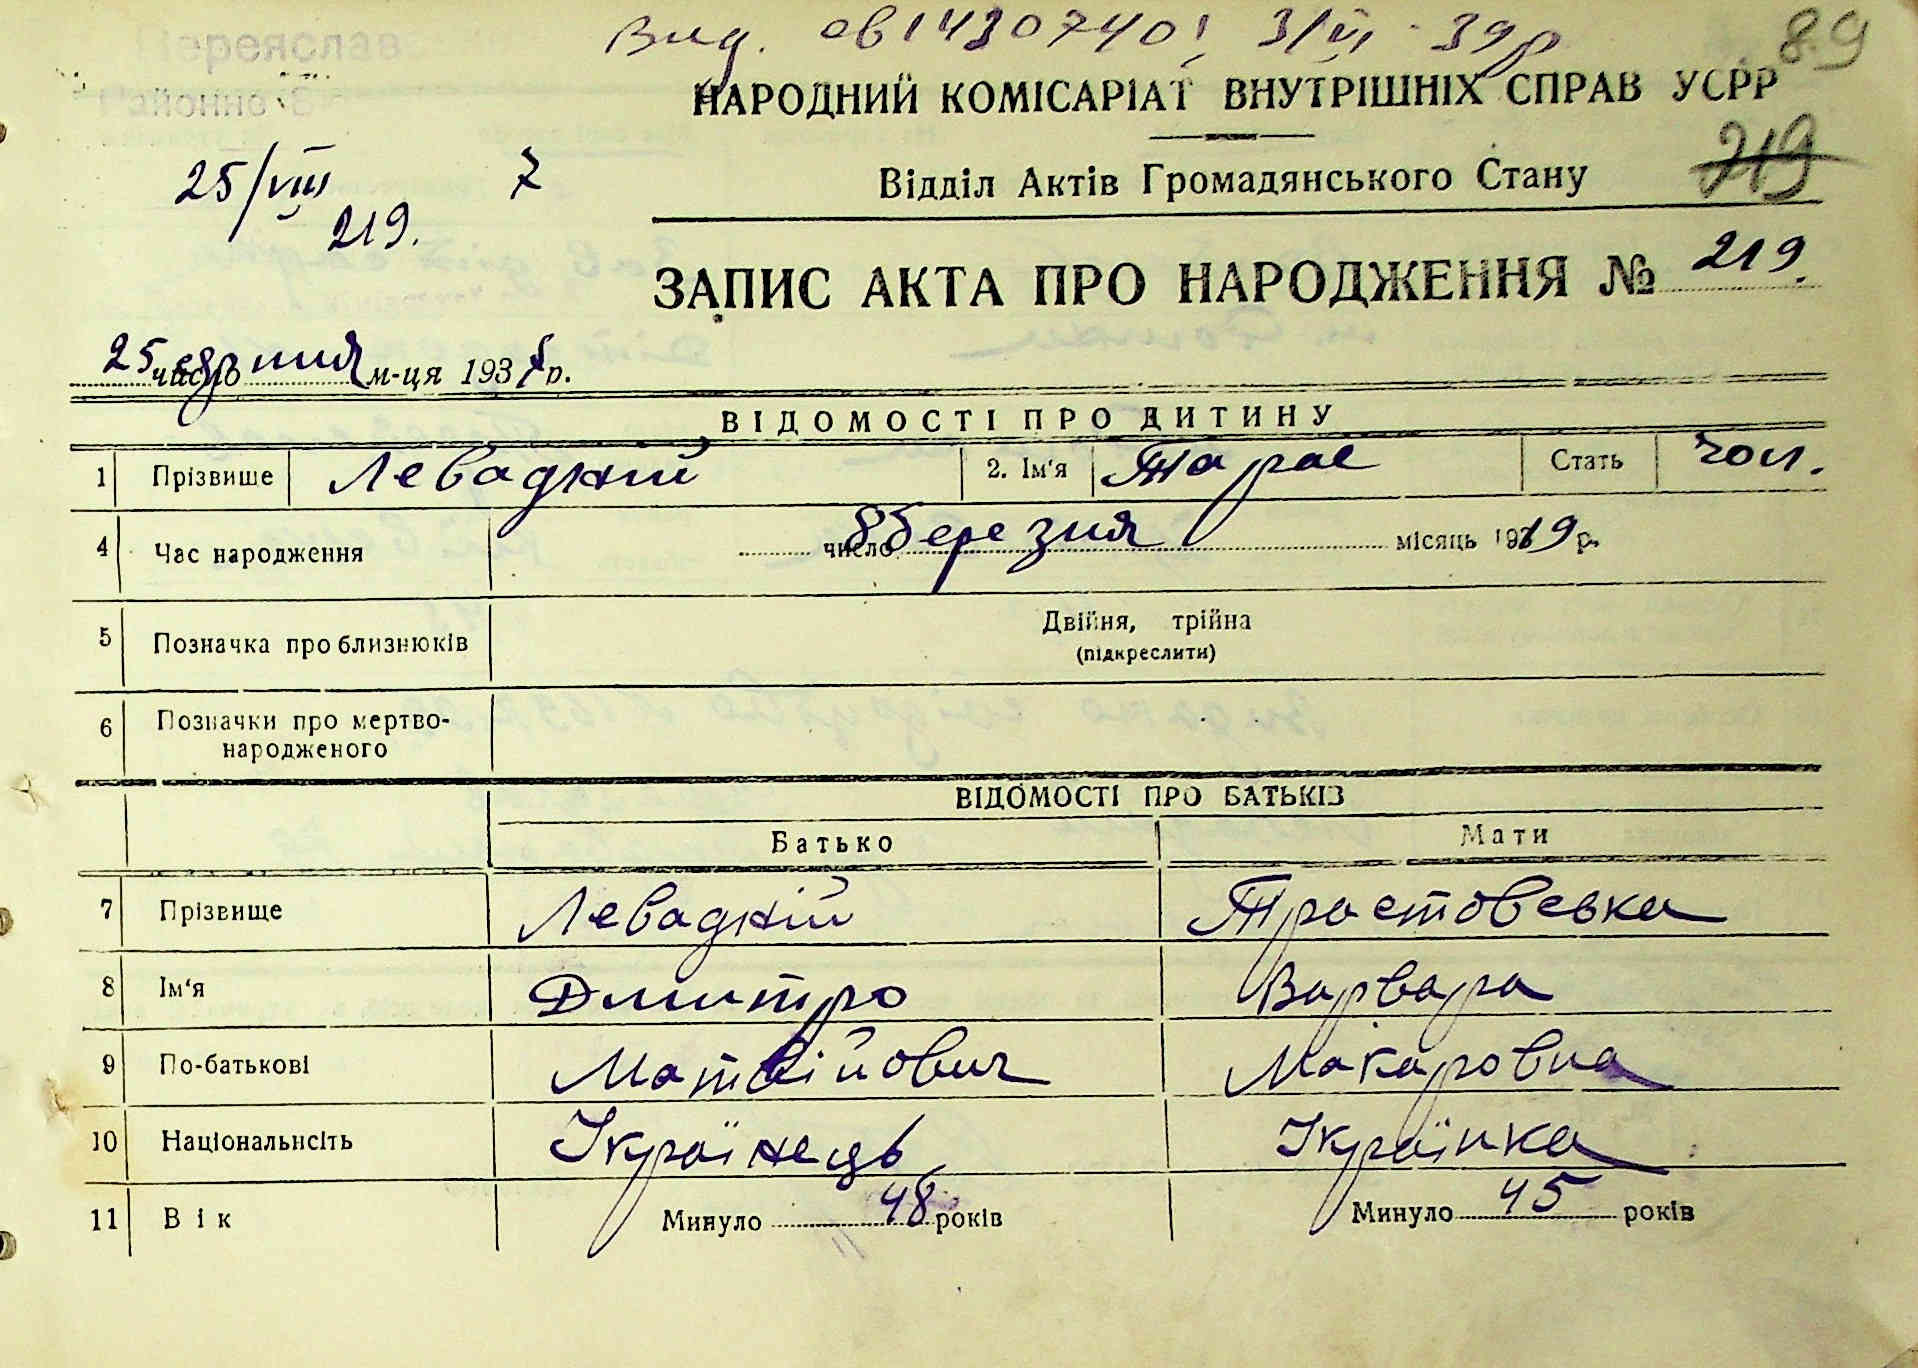 Вид. св 1430740! 3/VI - 39 р 89
Переяслав
Районне
НАРОДНИЙ КОМІСАРІАТ ВНУТРІШНІХ СПРАВ УСРР
219
25/VIII 7
219.
Відділ Актів Громадянського Стану
ЗАПИС АКТА ПРО НАРОДЖЕННЯ № 219.
25 число серпня м-ця 1937 р.
ВІДОМОСТІ ПРО ДИТИНУ
1 Прізвище Левадний 2. Ім'я Тарас Стать чол.
4 Час народження 8 число березня місяць 1919 р.
5 Позначка про близнюків Двійня, трійна
(підкреслити)
6 Позначки про мертво-
народженого
ВІДОМОСТІ ПРО БАТЬКІВ
Батько Мати
7 Прізвище Левадний Тростовська
8 Ім'я Дмитро Варвара
9 По-батькові Матвійович Макаровна
10 Національність Українець Українка
11 Вік Минуло 48 років Минуло 45 років